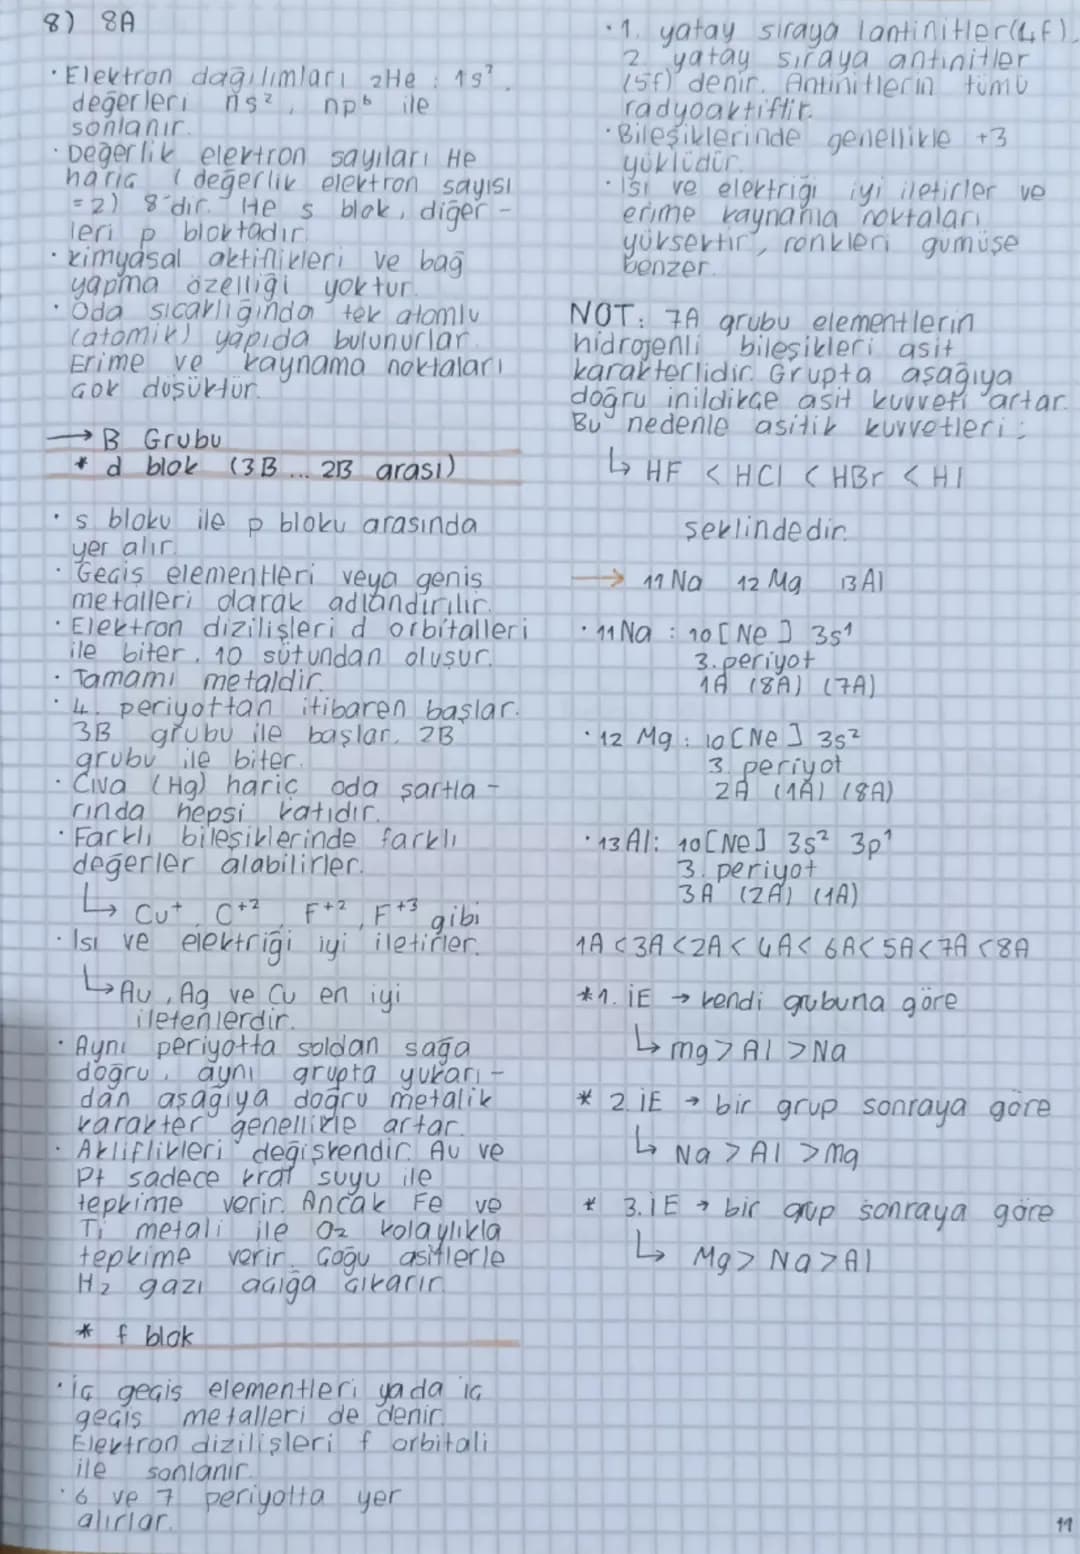 8) 8A
· Elektron dağılımları ₂He : 1s²,
değerleri ns², np⁶ ile
sonlanır.
· Değerlik elektron sayıları He
hariç (değerlik elektron sayısı
=2) 8'dir. He s blok, diğer-
leri p bloktadır.
· Kimyasal aktiflikleri ve bağ
yapma özelliği yoktur.
· Oda sıcaklığında tek atomlu
(atomik) yapıda bulunurlar.
Erime ve kaynama noktaları
çok düşüktür.
→ B Grubu
* d blok (3B ... 2B arası)
· s bloku ile p bloku arasında
yer alır.
· Geçiş elementleri veya geniş
metalleri olarak adlandırılır.
· Elektron dizilişleri d orbitalleri
ile biter. 10 sütundan oluşur.
· Tamamı metaldir.
· 4. periyottan itibaren başlar.
3B grubu ile başlar, 2B
grubu ile biter.
· Civa (Hg) hariç oda şartla-
rında hepsi katıdır.
· Farklı bileşiklerinde farklı
değerler alabilirler.
↳ Cu⁺, C⁺², F⁺², F⁺³ gibi
· Isı ve elektriği iyi iletirler.
↳ Au, Ag ve Cu en iyi
iletenlerdir.
· Aynı periyotta soldan sağa
doğru, aynı grupta yukarı-
dan aşağıya doğru metalik
karakter genellikle artar.
· Akliflikleri değişkendir. Au ve
Pt sadece kral suyu ile
tepkime verir. Ancak Fe ve
Ti metali ile O₂ kolaylıkla
tepkime verir. Çoğu asitlerle
H₂ gazı açığa çıkarır.
* f blok
· İç geçiş elementleri yada iç
geçiş metalleri de denir.
Elektron dizilişleri f orbitali
ile sonlanır.
· 6 ve 7 periyotta yer
alırlar.
· 1. yatay sıraya lantinitler(4f),
2. yatay sıraya antinitler
(5f) denir. Antinitlerin tümü
radyoaktiftir.
· Bileşiklerinde genellikle +3
yüklüdür.
· Isı ve elektriği iyi iletirler ve
erime kaynama noktaları
yüksektir, renkleri gümüşe
benzer.
NOT: 7A grubu elementlerin
hidrojenli bileşikleri asit
karakterlidir. Grupta aşağıya
doğru inildikçe asit kuvveti artar.
Bu nedenle asitik kuvvetleri;
↳ HF < HCl < HBr < HI
şeklindedir.
→ ₁₁Na ₁₂Mg ₁₃Al
· ₁₁Na : ₁₀[Ne] 3s¹
3. periyot
1A (8A) (7A)
· ₁₂Mg : ₁₀[Ne] 3s²
3. periyot
2A (1A) (8A)
· ₁₃Al: ₁₀[Ne] 3s² 3p¹
3. periyot
3A (2A) (1A)
1A<3A<2A<4A<6A<5A<7A<8A
*1. İE → kendi grubuna göre
↳ mg>Al>Na
* 2.İE → bir grup sonraya göre
↳ Na>Al>Mg
* 3.İE → bir grup sonraya göre
↳ Mg>Na>Al
11